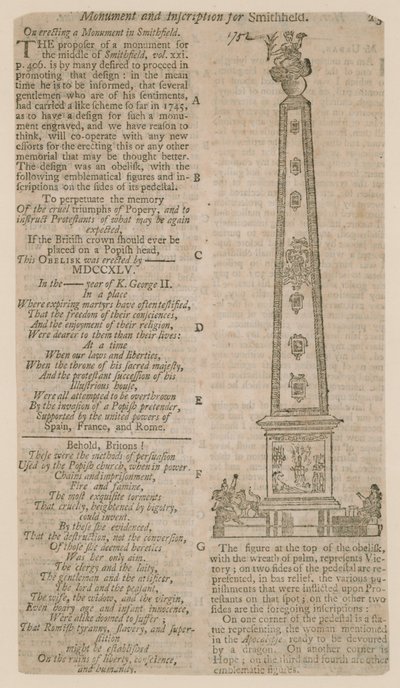 Monument and Inscription for Smithfield.
1752
On erecting a Monument in Smithfield.
THE proposer of a monument for
the middle of Smithfield, vol. xxi.
p. 406. is by many desired to proceed in
promoting that design: in the mean
time he is to be informed, that several
gentlemen who are of his sentiments,
had carried a like scheme so far in 1745,
as to have a design for such a monu-
ment engraved, and we have reason to
think, will co-operate with any new
efforts for the erecting this or any other
memorial that may be thought better.
The design was an obelisk, with the
following emblematical figures and in-
scriptions on the sides of its pedestal.
A
B
To perpetuate the memory
Of the cruel triumphs of Popery, and to
instruct Protestants of what may be again
expected,
If the British crown should ever be
placed on a Popish head,
This OBELISK was erected by ———
MDCCXLV.
In the —— year of K. George II.
In a place
Where expiring martyrs have often testified,
That the freedom of their consciences,
And the enjoyment of their religion,
Were dearer to them than their lives:
At a time
When our laws and liberties,
When the throne of his sacred majesty,
And the protestant succession of his
Illustrious house,
Were all attempted to be overthrown
By the invasion of a Popish pretender,
Supported by the united powers of
Spain, France, and Rome.
C
D
E
Behold, Britons!
These were the methods of persuasion
Used by the Popish church, when in power.
Chains and imprisonment,
Fire and famine,
The most exquisite torments
That cruelty, heightened by bigotry,
could invent.
By these she evidenced,
That the destruction, not the conversion,
Of those she deemed heretics
Was her only aim.
The clergy and the laity,
The gentleman and the artificer,
The lord and the peasant,
The wife, the widow, and the virgin,
Even hoary age and infant innocence,
Were alike doomed to suffer;
That Romish tyranny, slavery, and super-
stition
might be established
On the ruins of liberty, conscience,
and humanity.
F
G
The figure at the top of the obelisk,
with the wreath of palm, represents Vic-
tory; on two sides of the pedestal are re-
presented, in bas relief, the various pu-
nishments that were inflicted upon Pro-
testants on that spot; on the other two
sides are the foregoing inscriptions:
On one corner of the pedestal is a sta-
tue representing the woman mentioned
in the Apocalypse ready to be devoured
by a dragon. On another corner is
Hope; on the third and fourth are other
emblematic figures.